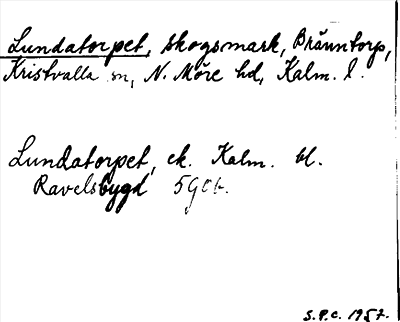 Lundatorpet, skogsmark, Bränntorp,
Kristvalla sn, N. Möre hd, Kalm. l.
Lundatorpet, ek. Kalm. bl.
Ravelsbygd 5G8b.
S.P.C. 1957.